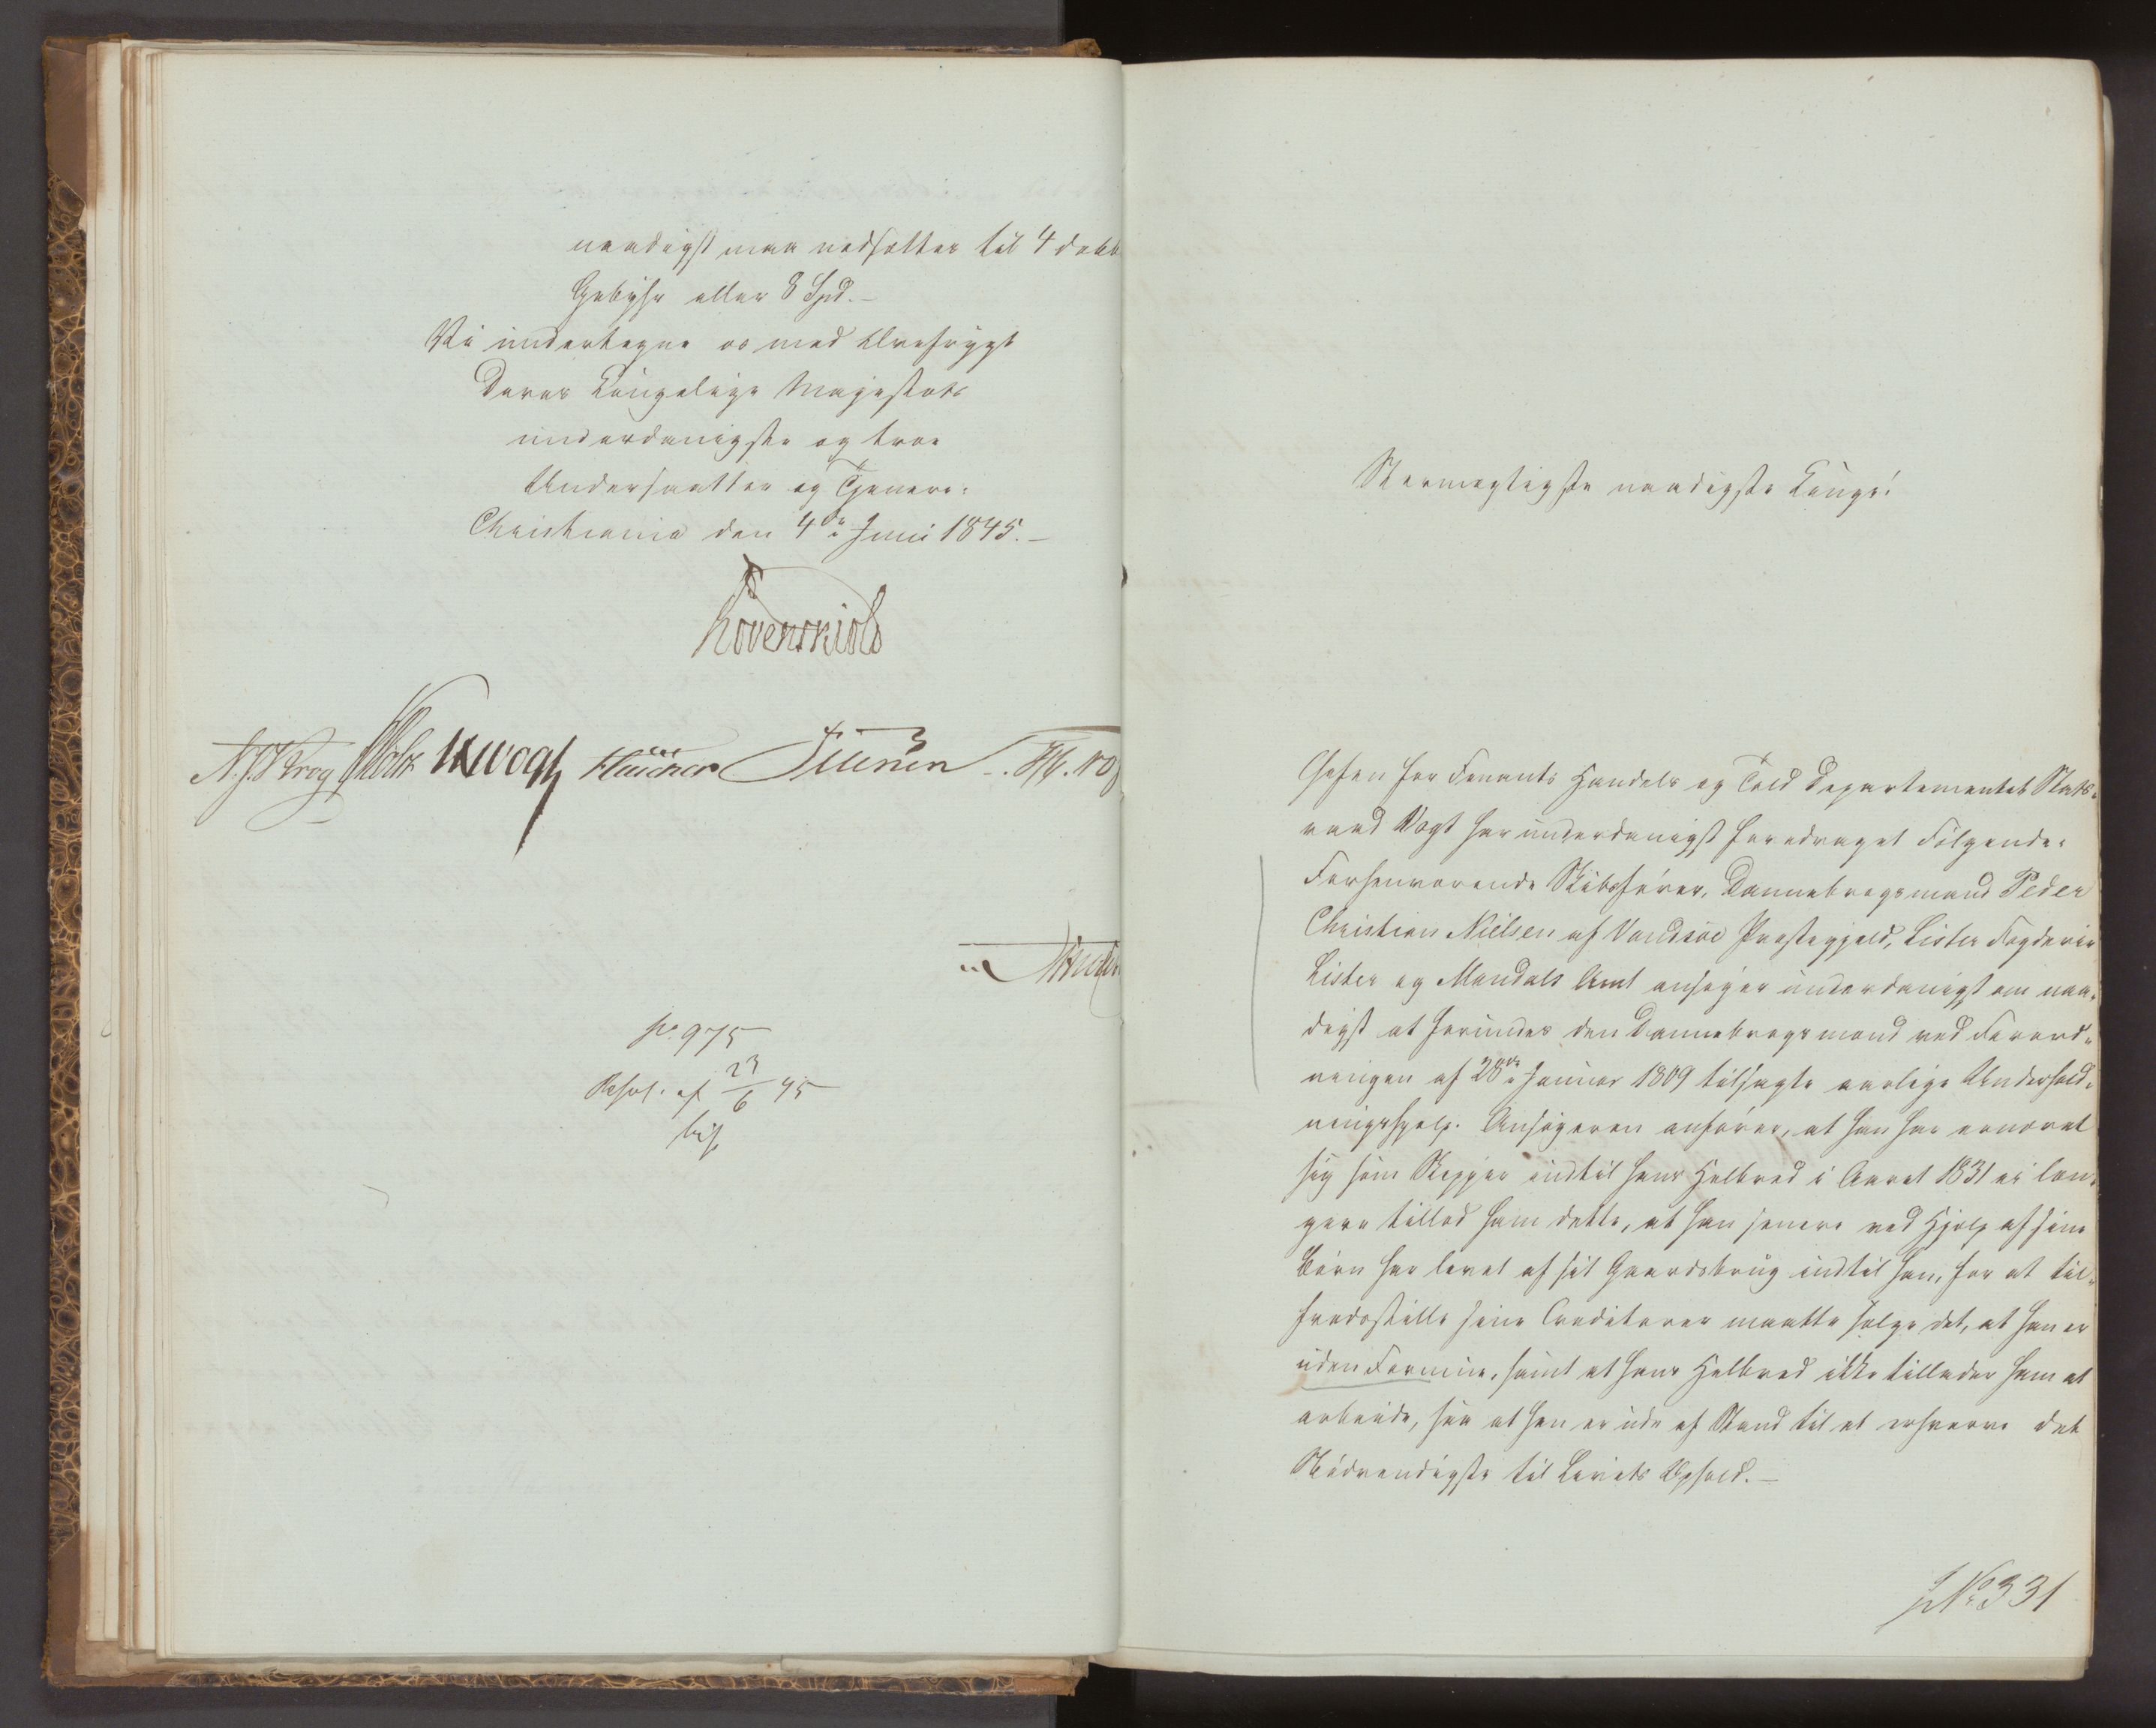 naadigst maa nedsættes til 4 dobb
Gebyhr eller 8 Spd.–
Vi undertegne os med Ærefrygt
Deres Kongelige Majestæts
underdanigste og troe
Undersaatter og Tjenere:
Christiania den 4de Juni 1845.–
Løvenskiold
N. J. Krog Holst Vogt
p. 975
Resol. af 23/6 45
Stormægtigste naadigste Konge!
Chefen for Finants Handels og Told Departementet Stats-
raad Vogt har underdanigst foredraget Følgende:
Forhenværende Skibsfører, Dannebrogsmand Peder
Christian Nielsen af Vandsøe Præstegjeld, Lister Fogderie
Lister og Mandals Amt ansøger underdanigst om naa-
digst at forundes den Dannebrogsmænd ved Forord-
ningen af 28de Januar 1809 tilsagte aarlige Underhold-
ningshjelp. Ansøgeren anfører, at han har ernæret
sig som Skipper indtil hans Helbred i Aaret 1831 ei læn-
gere tillod ham dette, at han senere ved Hjelp af sine
Børn har levet af sit Gaardsbrug indtil han, for at til-
fredsstille sine Creditorer maatte sælge det, at han er
uden Formue, samt at hans Helbred ikke tillader ham at
arbeide, saa at han er ude af Stand til at erhverve det
Nødvendigste til Livets Ophold.–
No 331